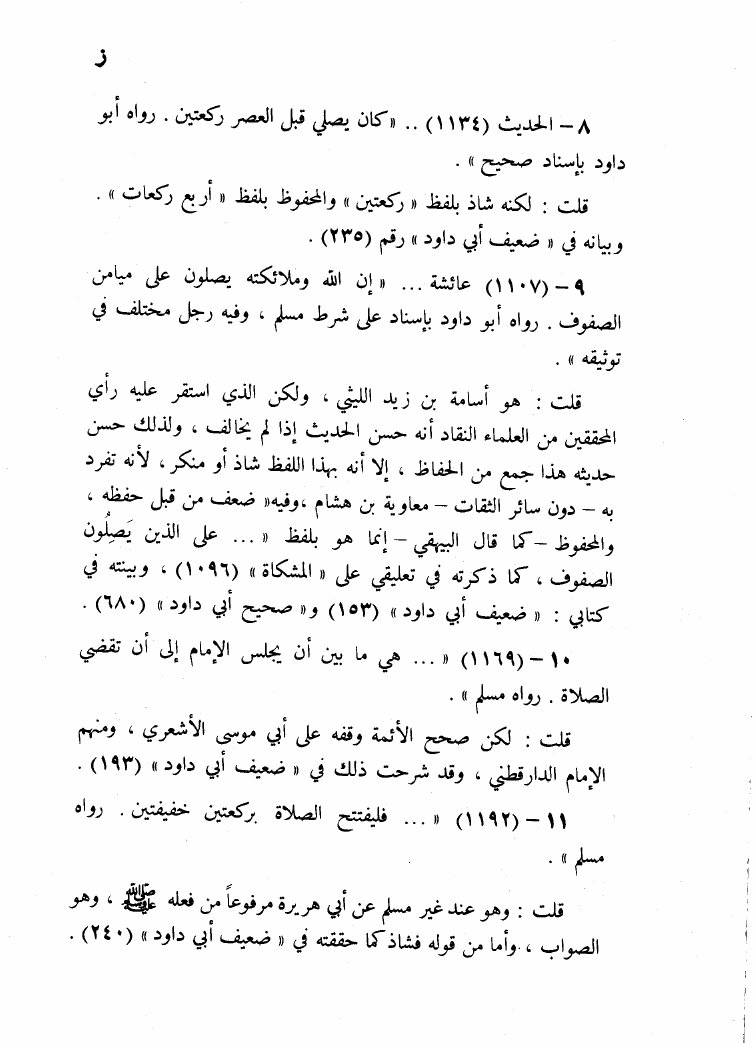 ز
٨ – الحديث (١١٣٤) .. « كان يصلي قبل العصر ركعتين . رواه أبو
داود بإسناد صحيح » .
قلت : لكنه شاذ بلفظ « ركعتين » والمحفوظ بلفظ « أربع ركعات » .
وبيانه في « ضعيف أبي داود » رقم (٢٣٥) .
٩ – (١١٠٧) عائشة ... « إن الله وملائكته يصلون على ميامن
الصفوف . رواه أبو داود بإسناد على شرط مسلم ، وفيه رجل مختلف في
توثيقه » .
قلت : هو أسامة بن زيد الليثي ، ولكن الذي استقر عليه رأي
المحققين من العلماء النقاد أنه حسن الحديث إذا لم يخالف ، ولذلك حسن
حديثه هذا جمع من الحفاظ ، إلا أنه بهذا اللفظ شاذ أو منكر ، لأنه تفرد
به – دون سائر الثقات – معاوية بن هشام ،وفيه« ضعف من قبل حفظه ،
والمحفوظ –كما قال البيهقي – إنما هو بلفظ « ... على الذين يَصِلُون
الصفوف ، كما ذكرته في تعليقي على « المشكاة » (١٠٩٦) ، وبينته في
كتابي : « ضعيف أبي داود » (١٥٣) و« صحيح أبي داود » (٦٨٠) .
١٠ – (١١٦٩) « ... هي ما بين أن يجلس الإمام إلى أن تقضي
الصلاة . رواه مسلم » .
قلت : لكن صحح الأئمة وقفه على أبي موسى الأشعري ، ومنهم
الإمام الدارقطني ، وقد شرحت ذلك في « ضعيف أبي داود » (١٩٣) .
١١ – (١١٩٢) « ... فليفتتح الصلاة بركعتين خفيفتين . رواه
مسلم » .
قلت : وهو عند غير مسلم عن أبي هريرة مرفوعاً من فعله ﷺ ، وهو
الصواب ، وأما من قوله فشاذ كما حققته في « ضعيف أبي داود » (٢٤٠) .